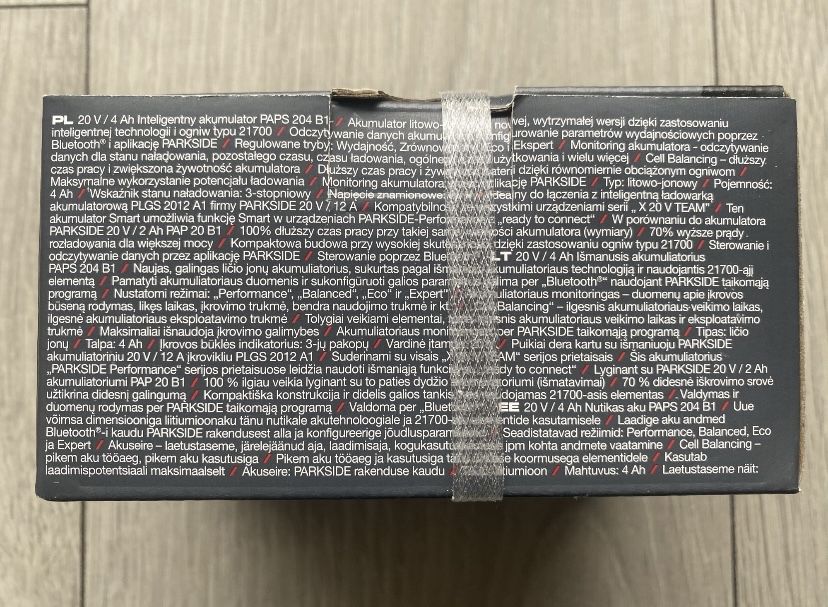 PL 20 V / 4 Ah Inteligentny akumulator PAPS 204 B1 / Akumulator litowo- nowej, wytrzymałej wersji dzięki zastosowaniu
inteligentnej technologii i ogniw typu 21700 / Odczytywanie danych akumu urowanie parametrów wydajnościowych poprzez
Bluetooth® i aplikację PARKSIDE / Regulowane tryby: Wydajność, Zrównow Ekspert / Monitoring akumulatora - odczytywanie
danych dla stanu naładowania, pozostałego czasu, czasu ładowania, ogólne użytkowania i wielu więcej / Cell Balancing – dłuższy
czas pracy i zwiększona żywotność akumulatora / Dłuższy czas pracy i żywot dzięki równomiernie obciążonym ogniwom /
Maksymalne wykorzystanie potencjału ładowania / Monitoring akumulatora aplikację PARKSIDE / Typ: litowo-jonowy / Pojemność:
4 Ah / Wskaźnik stanu naładowania: 3-stopniowy / Napięcie znamionowe: Idealny do łączenia z inteligentną ładowarką
akumulatorową PLGS 2012 A1 firmy PARKSIDE 20 V / 12 A / Kompatybilno wszystkimi urządzeniami serii „X 20 V TEAM” / Ten
akumulator Smart umożliwia funkcję Smart w urządzeniach PARKSIDE-Perfor „ready to connect” / W porównaniu do akumulatora
PARKSIDE 20 V / 2 Ah PAP 20 B1 / 100% dłuższy czas pracy przy takiej sam ości akumulatora (wymiary) / 70% wyższe prądy
rozładowania dla większej mocy / Kompaktowa budowa przy wysokiej skute dzięki zastosowaniu ogniw typu 21700 / Sterowanie i
odczytywanie danych przez aplikację PARKSIDE / Sterowanie poprzez Blue LT 20 V / 4 Ah Išmanusis akumuliatorius
PAPS 204 B1 / Naujas, galingas ličio jonų akumuliatorius, sukurtas pagal išm akumuliatoriaus technologiją ir naudojantis 21700-ąjį
elementą / Pamatyti akumuliatoriaus duomenis ir sukonfigūruoti galios param lima per „Bluetooth®“ naudojant PARKSIDE taikomąją
programą / Nustatomi režimai: „Performance“, „Balanced“, „Eco“ ir „Expert“ uliatoriaus monitoringas – duomenų apie įkrovos
būseną rodymas, likęs laikas, įkrovimo trukmė, bendra naudojimo trukmė ir kt Balancing“ – ilgesnis akumuliatoriaus veikimo laikas,
ilgesnė akumuliatoriaus eksploatavimo trukmė / Tolygiai veikiami elementai, snis akumuliatoriaus veikimo laikas ir eksploatavimo
trukmė / Maksimaliai išnaudoja įkrovimo galimybes / Akumuliatoriaus monit per PARKSIDE taikomąją programą / Tipas: ličio
jonų / Talpa: 4 Ah / Įkrovos būklės indikatorius: 3-jų pakopų / Vardinė įtam / Puikiai dera kartu su išmaniuoju PARKSIDE
akumuliatoriniu 20 V / 12 A įkrovikliu PLGS 2012 A1 / Suderinami su visais „X AM“ serijos prietaisais / Šis akumuliatorius
„PARKSIDE Performance“ serijos prietaisuose leidžia naudoti išmaniąją funkc dy to connect“) / Lyginant su PARKSIDE 20 V / 2 Ah
akumuliatoriumi PAP 20 B1 / 100 % ilgiau veikia lyginant su to paties dydžio toriumi (išmatavimai) / 70 % didesnė iškrovimo srovė
užtikrina didesnį galingumą / Kompaktiška konstrukcija ir didelis galios tankis dojamas 21700-asis elementas / Valdymas ir
duomenų rodymas per PARKSIDE taikomąją programą / Valdoma per „Bluet EE 20 V / 4 Ah Nutikas aku PAPS 204 B1 / Uue
võimsa dimensiooniga liitiumioonaku tänu nutikale akutehnoloogiale ja 21700- entide kasutamisele / Laadige aku andmed
Bluetooth®-i kaudu PARKSIDE rakendusest alla ja konfigureerige jõudluspara / Seadistatavad režiimid: Performance, Balanced, Eco
ja Expert / Akuseire – laetustaseme, järelejäänud aja, laadimisaja, kogukasut jpm kohta andmete vaatamine / Cell Balancing –
pikem aku tööaeg, pikem aku kasutusiga / Pikem aku tööaeg ja kasutusiga tä se koormusega elementidele / Kasutab
laadimispotentsiaali maksimaalselt / Akuseire: PARKSIDE rakenduse kaudu itiumioon / Mahtuvus: 4 Ah / Laetustaseme näit: